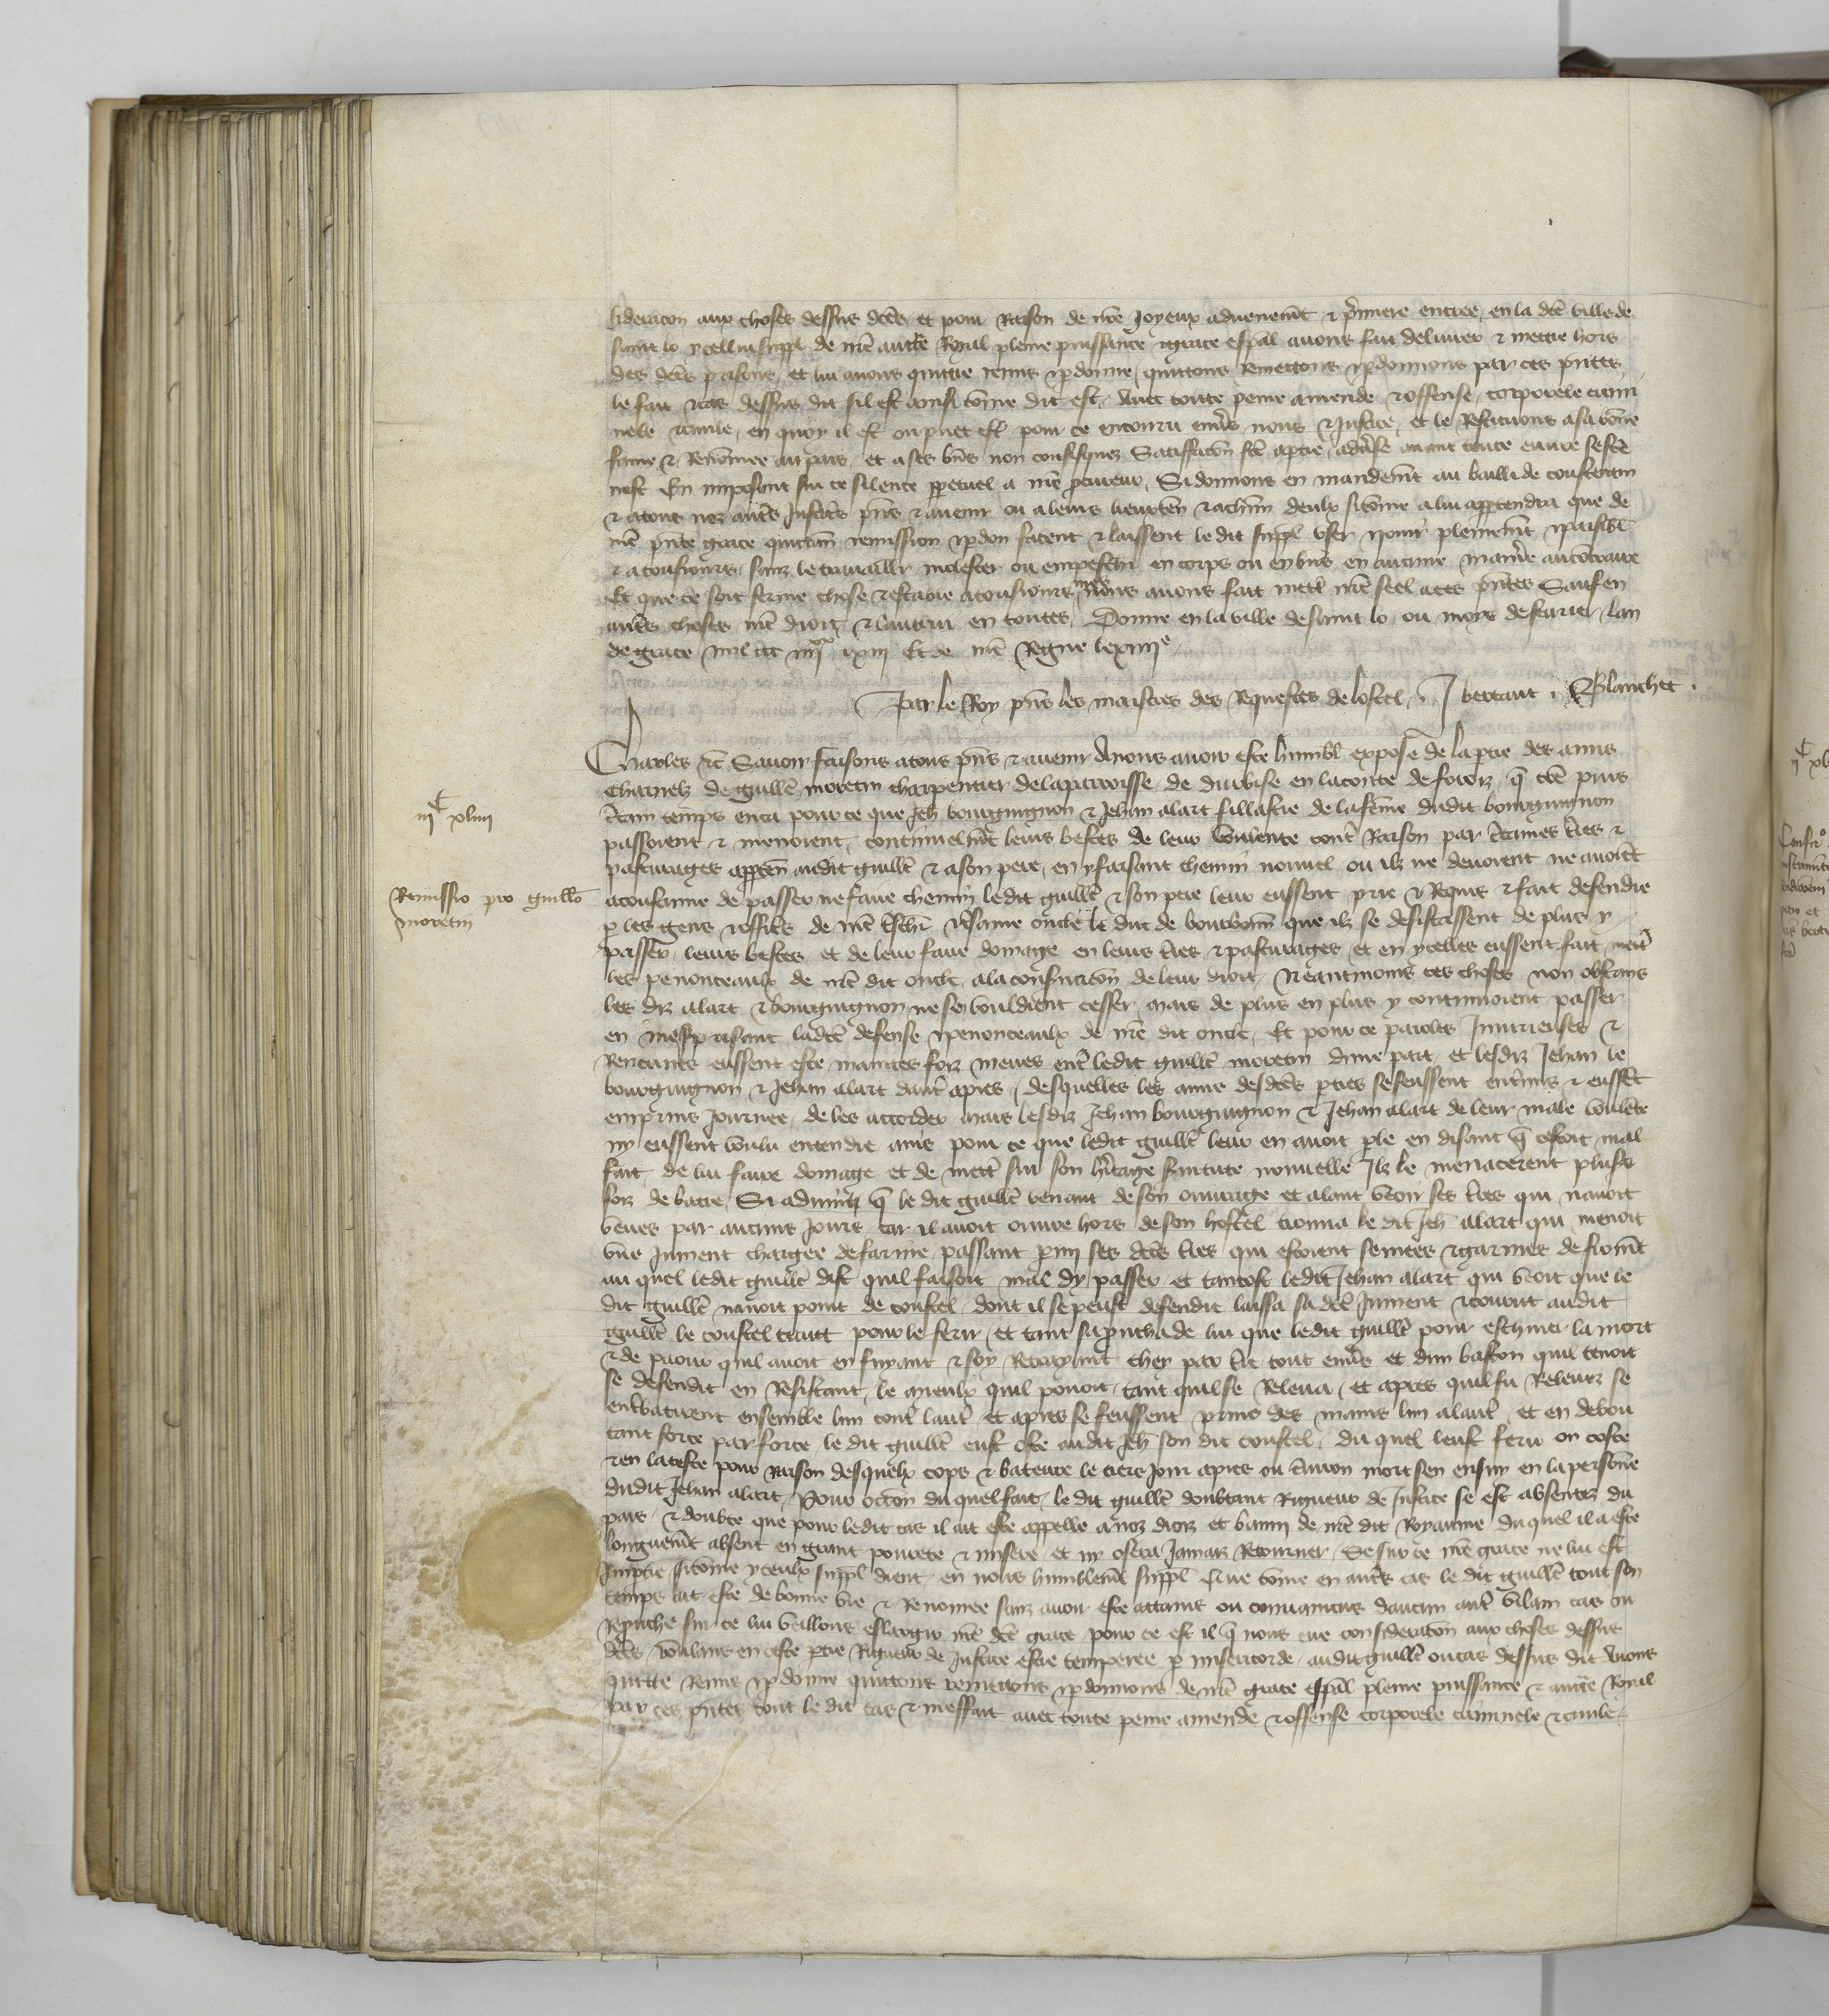 sideracon aux choses dessus dces et pour Raison de nre Joyeux advenement & premiere entree en la dce ville de
saint lo ycellui suppl de nre aucte Royal pleine puissance & grace espal avons fait delivrer & mettre hors
des dces prisons et lui avons quitte remis & pdonne quittons Remettons & pdonnons par ces pntes
le fait & cas dessus dit sil est ainsi come dit est avec toute peine amende & offense corporele crimi
nele & civile en quoy il est ou puet est pour ce encouru envs nous & Justice et le Restituons a sa bone
fame & Renomee au pais et a ses bns non confisquez Satisfacon fce a ptie adverse avant toute euvre se fce
nest En imposant sur ce silence ppetuel a nre pcureur Si donnons en mandemt au bailli de coustentin
& a tous noz autres Justic pns & avenir ou a leurs lieuxten & a chun deulx si come a lui apptendra que de
nre pnte grace quittan remission & pdon facent & laissent le dit suppl user & joir pleinemt & paisibl
& a tousiours sanz le travailler molester ou empeschr en corps ou en bns en aucune maniere au contraire
Et que ce soit ferme chose & estable a tousiours mes nous avons fait mettre nre seel a ces pntes Sauf en
autres choses nre droit & lautrui en toutes Donne en la ville de saint lo ou moys de fevrier lan
de grace mil ccc iiiixx & xiii Et de nre Regne le xiiiie
Par le Roy pns les maistres des Requestes de lostel J bertaut Blanchet
iiiC xliiii
Remissio pro guillo
moretin
Charles &c Savoir faisons a tous pns & avenir A nous avoir este humbl expose de la ptie des amis
charnelz de guille moretin charpentier de la parroisse de en la conte de forez q come puis
ctain temps enca pour ce que Jeh bourguignon & Jehan alart fillastre de la feme dudit bourguignon
passoient & menoient continuelmt leurs bestes de leur voulente contre Raison par ctaines tres &
pasturages apptn audit guille & a son pere en y faisant chemin nouvel ou ilz ne devoient ne avoient
acoustume de passer ne faire chemin ledit guille & son pere leur eussent prie & Requis & fait defendre
p les gens & offics de nre tschr & tsame oncle le duc de bourbonn que ilz se desistassent de plus y
passer leurs bestes et de leur faire domage en leurs tres & pasturages et en ycelles eussent fait mettre
les penonceaulx de nre dit oncle a la consvacion de leur droit Neantmoins ces choses non obstans
les diz alart & bourguignon ne se vouldrent cesser mais de plus en plus y continuoient passer
en mesprisant ladce defense & penonceaulx de nre dit oncle Et pour ce paroles Injurieuses &
Rencunes eussent este maintes foiz meues entre ledit guille moretin dune part et lesdiz Jehan le
bourguignon & Jehan alart dautre apres desquelles les amis desdces pties se feussent entremis & eussent
emprins Journee de les accorder mais lesdiz Jehan bourguignon & Jehan alart de leur male voulente
ny eussent voulu entendre ains pour ce que ledit guille leur en avoit ple en disant q cestoit mal
fait de lui faire domage et de mettre sur son heritage servitute nouvelle Ilz le menacerent pluss
foiz de batre Si advint q le dit guille venant de son ouvrage et alant veoir ses tres qui navoit
veues par aucuns Jours car il avoit ouvre hors de son hostel trouva le dit Jeh alart qui menoit
une Jument chargee de farine passant pmi ses dces tres qui estoient semees & garnies de fromt
au quel ledit guille dist quil faisoit mal dy passer et tantost ledit Jehan alart qui veoit que le
dit guille navoit point de coustel dont il se peust defendre laissa sa dce Jument & courut audit
guille le coustel trait pour le ferir et tant sapprucha de lui que ledit guille pour eschiver la mort
& de paour quil avoit en fuyant & soy Retrayant chey par tre tout envs et dun baston quil tenoit
se defendit en Resistant le mieulx quil povoit tant quil se Releva et apres quil fu Relevez se
entrebatirent ensemble lun contre lautre et apres se feussent prins des mains lun a lautre et en debou
tant force par force le dit guille eust oste audit Jeh son dit coustel du quel leust feru ou coste
& en la teste pour Raison desquelx cops & bateure le tiers Jour apres ou environ mort sen ensuy en la personne
dudit Jehan alart Pour occon du quel fait le dit guille doubtant Rigueur de Justice se est absentez du
pais & doubte que pour ledit cas il ait este appelle a noz droiz et banni de nre dit Royaume du quel il a este
longuemt absent en grant povrete & misere et ny osera Jamaiz Retourner Se sur ce nre grace ne lui est
Impartie si come yceulx suppl dient en nous humblemt suppl Que come en autres cas le dit guille tout son
temps ait este de bonne vie & Renomee sanz avoir este attaint ou convaincus daucun autre vilain cas ou
Repruche sur ce lui veillons eslargir nre dce grace pour ce est il q nous eue consideracon aux choses dessus
dces voulans en ceste ptie Rigueur de Justice estre temperee p misericorde audit guille ou cas dessus dit Avons
quitte Remis & pdonne quittons remettons & pdonnons de nre grace espal pleine puissance & aucte Royal
par ces pntes tout le dit cas & meffait avec toute peine amende & offense corporele criminele & civile